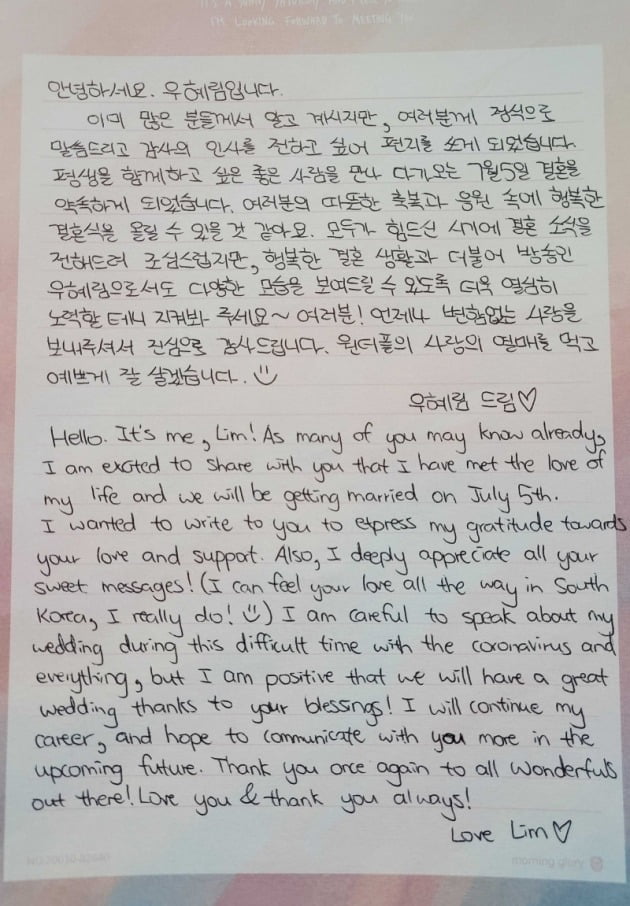 I'M LOOKING FORWARD TO MEETING YOU
안녕하세요. 우혜림입니다.
이미 많은 분들께서 알고 계시지만, 여러분께 정식으로
말씀드리고 감사의 인사를 전하고 싶어 편지를 쓰게 되었습니다.
평생을 함께하고 싶은 좋은 사람을 만나 다가오는 7월5일 결혼을
약속하게 되었습니다. 여러분의 따뜻한 축복과 응원 속에 행복한
결혼식을 올릴 수 있을 것 같아요. 모두가 힘드신 시기에 결혼 소식을
전해드려 조심스럽지만, 행복한 결혼 생활과 더불어 방송인
우혜림으로서도 다양한 모습을 보여드릴 수 있도록 더욱 열심히
노력할 테니 지켜봐 주세요~ 여러분! 언제나 변함없는 사랑을
보내주셔서 진심으로 감사드립니다. 원더풀의 사랑의 열매를 먹고
예쁘게 잘 살겠습니다. 
우혜림 드림♡
Hello. It's me, Lim! As many of you may know already,
I am excited to share with you that I have met the love of
my life and we will be getting married on July 5th.
I wanted to write to you to express my gratitude towards
your love and support. Also, I deeply appreciate all your
sweet messages! (I can feel your love all the way in South
Korea, I really do! ) I am careful to speak about my
wedding during this difficult time with the coronavirus and
everything, but I am positive that we will have a great
wedding thanks to your blessings! I will continue my
career, and hope to communicate with you more in the
upcoming future. Thank you once again to all Wonderfuls
out there! Love you & thank you always!
Love Lim♡
morning glory